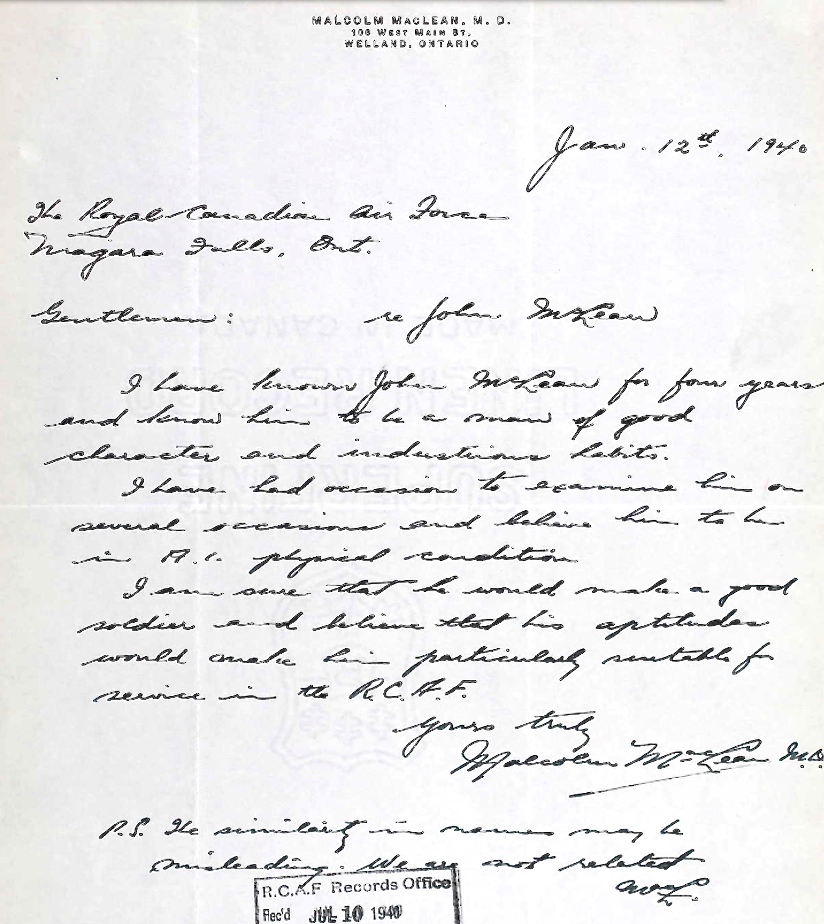 MALCOLM MACLEAN, M. D.
106 WEST MAIN ST.
WELLAND, ONTARIO
Jan. 12th, 1940
The Royal Canadian Air Force
Niagara Falls, Ont.
Gentlemen: re John McLean
I have known John McLean for four years
and know him to be a man of good
character and industrious habits.
I have had occasion to examine him on
several occasions and believe him to be
in A.1. physical condition
I am sure that he would make a good
soldier and believe that his aptitudes
would make him particularly suitable for
service in the R.C.A.F.
Yours truly
Malcolm MacLean M.D.
P.S. The similarity in names may be
misleading. We are not related
R.C.A.F Records Office
Rec'd JUL 10 1940